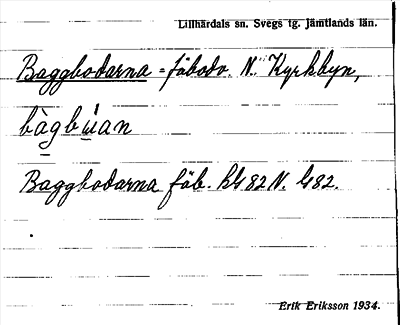 Lillhärdals sn. Svegs tg. Jämtlands län.
Baggbodarna = fäbodv. N. Kyrkbyn,
bàgbu̇an
Baggbodarna fäb. hls 82 N. ls 82.
Erik Eriksson 1934.